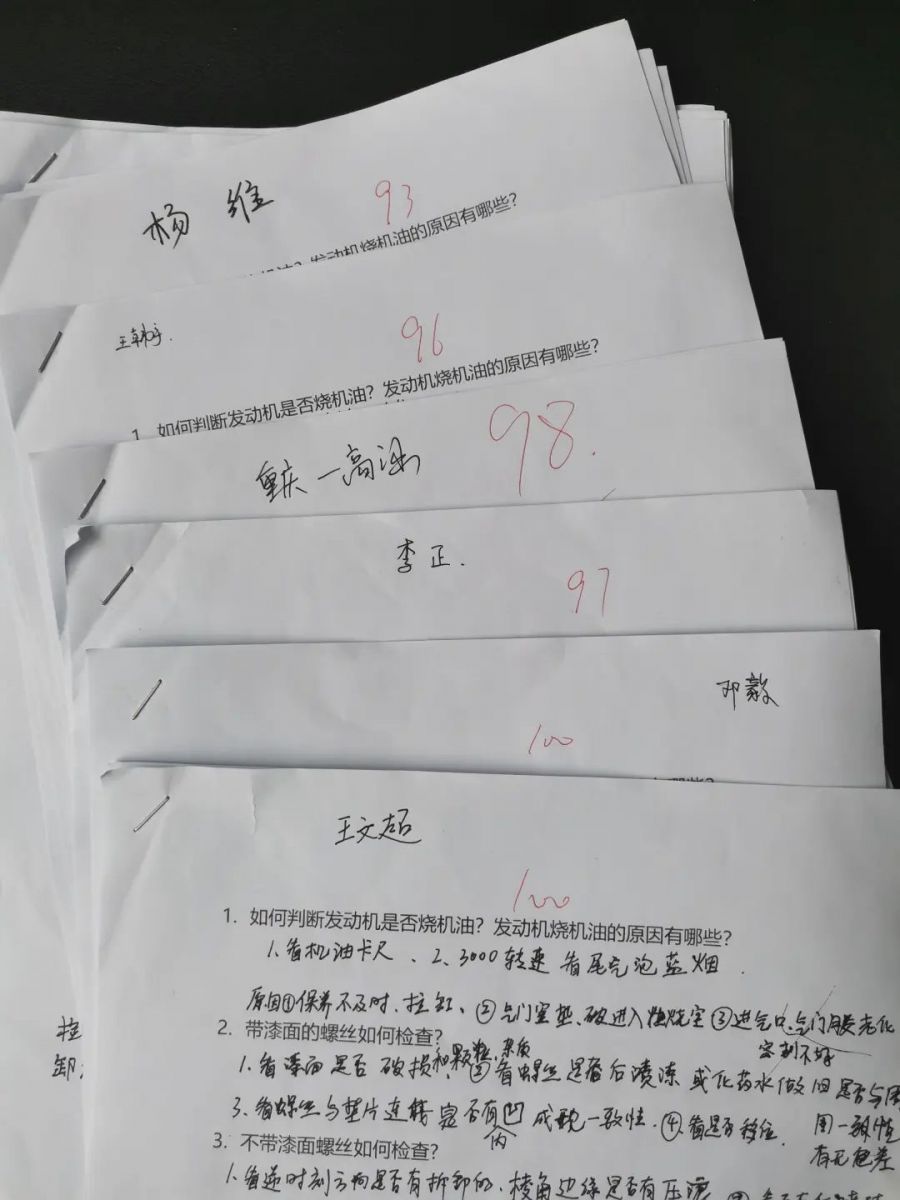 杨 维
93
发动机烧机油的原因有哪些?
王韩
96
1、如何判断发动机是否烧机油? 发动机烧机油的原因有哪些?
重庆一高涵
98.
李正.
97
邓毅
100
王文超
100
1. 如何判断发动机是否烧机油? 发动机烧机油的原因有哪些?
1.看机油卡尺、2、3000转速 看尾气泡蓝烟.
原因①保养不及时、拉缸、②气门室垫、破进入燃烧室③进气口、气门胶老化
密封不好
2. 带漆面的螺丝如何检查?
和颗粒、杂质
1.看漆面是否破损、②看螺丝是否后喷漆 或化药水做旧是否与周
3.看螺丝与垫片连接 是否有凹 成色一致性.④看是否移位. 周一致性
内
有无色差
3. 不带漆面螺丝如何检查?
拉
卸
1.看 时刻 是否有拆卸的、棱角边缘是否有压